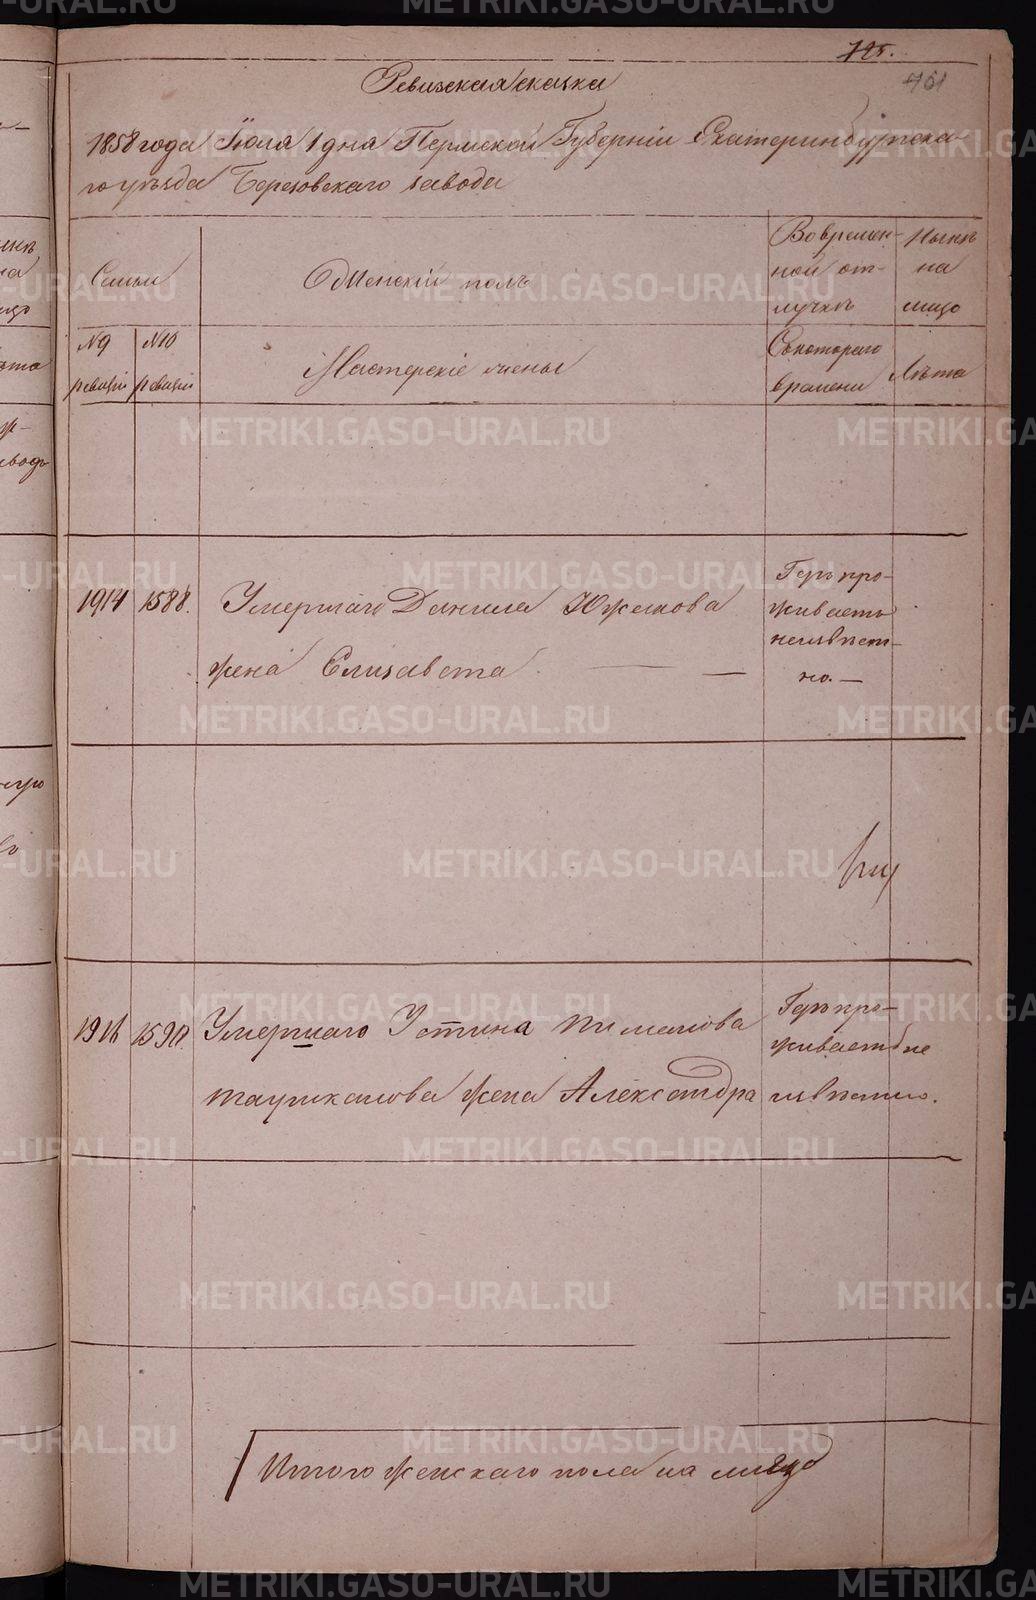 725.
761
Ревизская сказка
1858 года Июля 1 дня Пермской Губернии Екатеринбургска-
го уѣзда Березовскаго завода
Семьи
Женскій полъ
Во времен-
ной от-
лучкѣ
Нынѣ
на
лицо
№ 9
ревизіи
№ 10
ревизіи
Мастерскіе жены
Съ котораго
времени
Лѣта
1914 1588.
Умершаго Данила Южакова
жена Елисавета —
Гдѣ про-
живаетъ
неизвѣст-
но. —
1916 1590.
Умершаго Устина Пименова
жена Александра
Гдѣ про-
живаетъ не
извѣстно.
Итого женскаго пола на лицо
METRIKI.GASO-URAL.RU